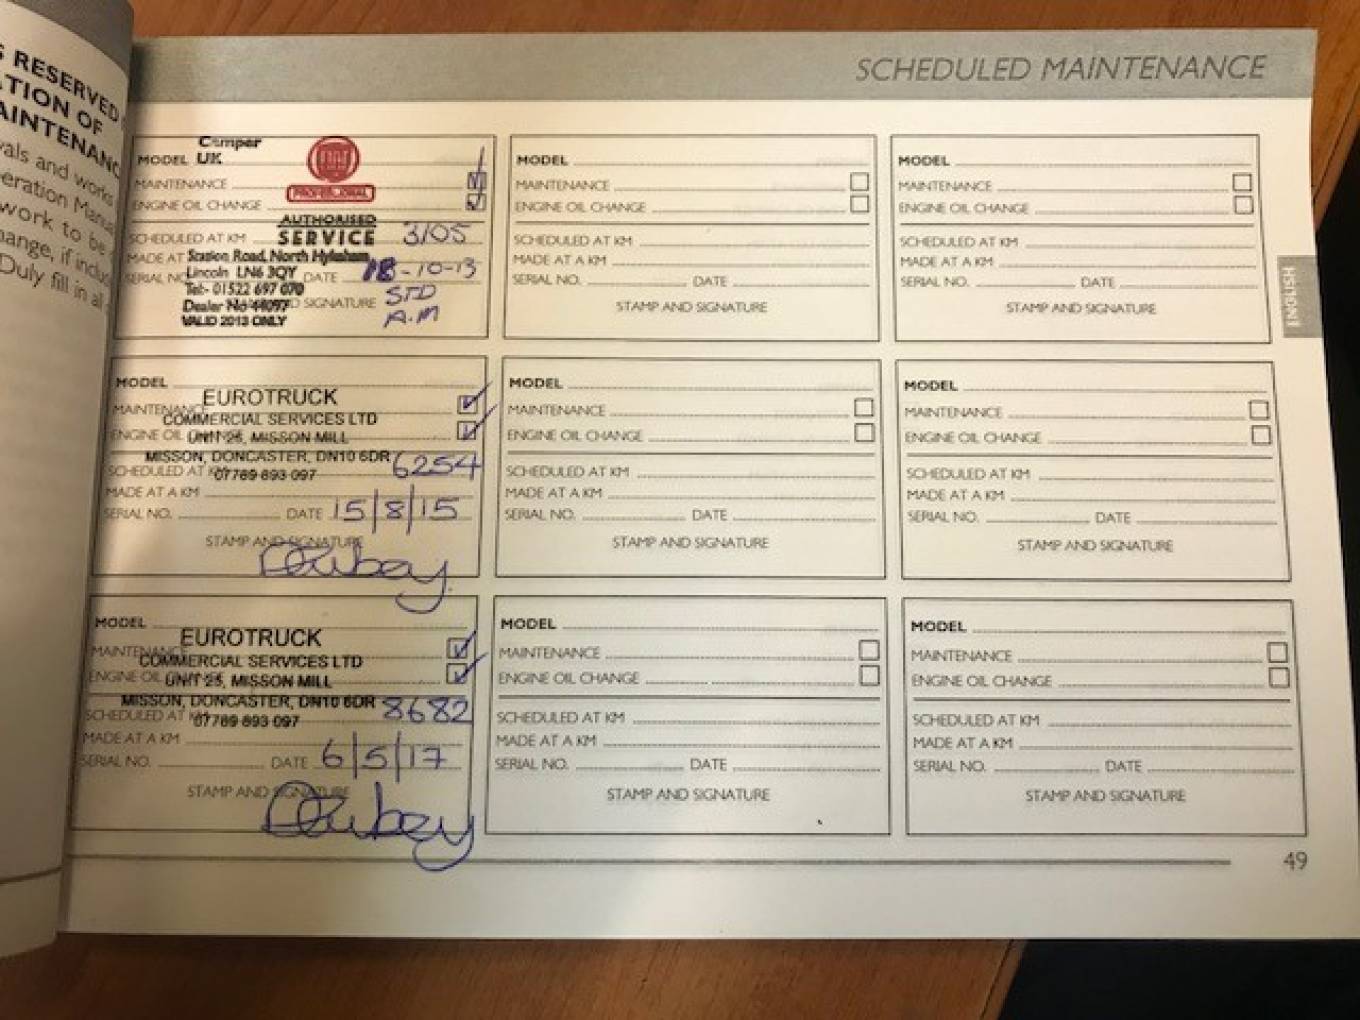 S RESERVED
ATION OF
AINTENANC
vals and works
eration Manua
work to be
hange, if includ
Duly fill in all
SCHEDULED MAINTENANCE
Camper
MODEL UK
FIAT
MAINTENANCE
PROFESSIONAL
ENGINE OIL CHANGE
AUTHORISED
SCHEDULED AT KM SERVICE 3105
MADE AT Station Road, North Hykeham
SERIAL NO. Lincoln LN6 3QY DATE 18-10-13
Tel:- 01522 697 070 STD
Dealer No 44097 AND SIGNATURE A.M
VALID 2013 ONLY
MODEL
MAINTENANCE
ENGINE OIL CHANGE
SCHEDULED AT KM
MADE AT A KM
SERIAL NO. DATE
STAMP AND SIGNATURE
MODEL
MAINTENANCE
ENGINE OIL CHANGE
SCHEDULED AT KM
MADE AT A KM
SERIAL NO. DATE
STAMP AND SIGNATURE
ENGLISH
MODEL
EUROTRUCK
MAINTENANCE
COMMERCIAL SERVICES LTD
ENGINE OIL UNIT 25, MISSON MILL
MISSON, DONCASTER, DN10 6DR 6254
SCHEDULED AT KM 07789 893 097
MADE AT A KM
SERIAL NO. DATE 15/8/15
STAMP AND SIGNATURE
MODEL
MAINTENANCE
ENGINE OIL CHANGE
SCHEDULED AT KM
MADE AT A KM
SERIAL NO. DATE
STAMP AND SIGNATURE
MODEL
MAINTENANCE
ENGINE OIL CHANGE
SCHEDULED AT KM
MADE AT A KM
SERIAL NO. DATE
STAMP AND SIGNATURE
MODEL
EUROTRUCK
MAINTENANCE
COMMERCIAL SERVICES LTD
ENGINE OIL UNIT 25, MISSON MILL
MISSON, DONCASTER, DN10 6DR 8682
SCHEDULED AT KM 07789 893 097
MADE AT A KM
SERIAL NO. DATE 6/5/17
STAMP AND SIGNATURE
MODEL
MAINTENANCE
ENGINE OIL CHANGE
SCHEDULED AT KM
MADE AT A KM
SERIAL NO. DATE
STAMP AND SIGNATURE
MODEL
MAINTENANCE
ENGINE OIL CHANGE
SCHEDULED AT KM
MADE AT A KM
SERIAL NO. DATE
STAMP AND SIGNATURE
49